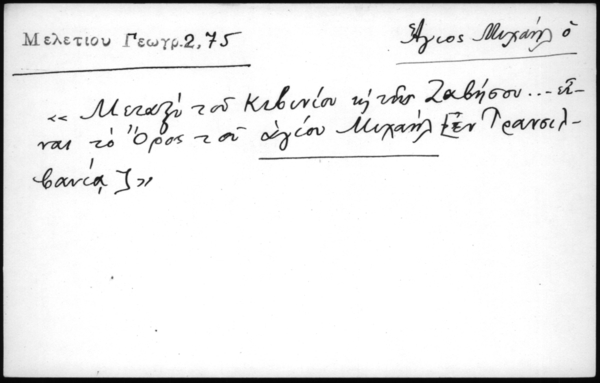 Μελετίου Γεωγρ. 2, 75
Ἅγιος Μιχαήλ ὁ
« Μεταξὺ τοῦ Κιβινίου κ' τῆς Ζαβήσου... εἶ-
ναι τὸ Ὄρος τοῦ ἁγίου Μιχαήλ [ἐν Τρανσιλ-
βανίᾳ] »